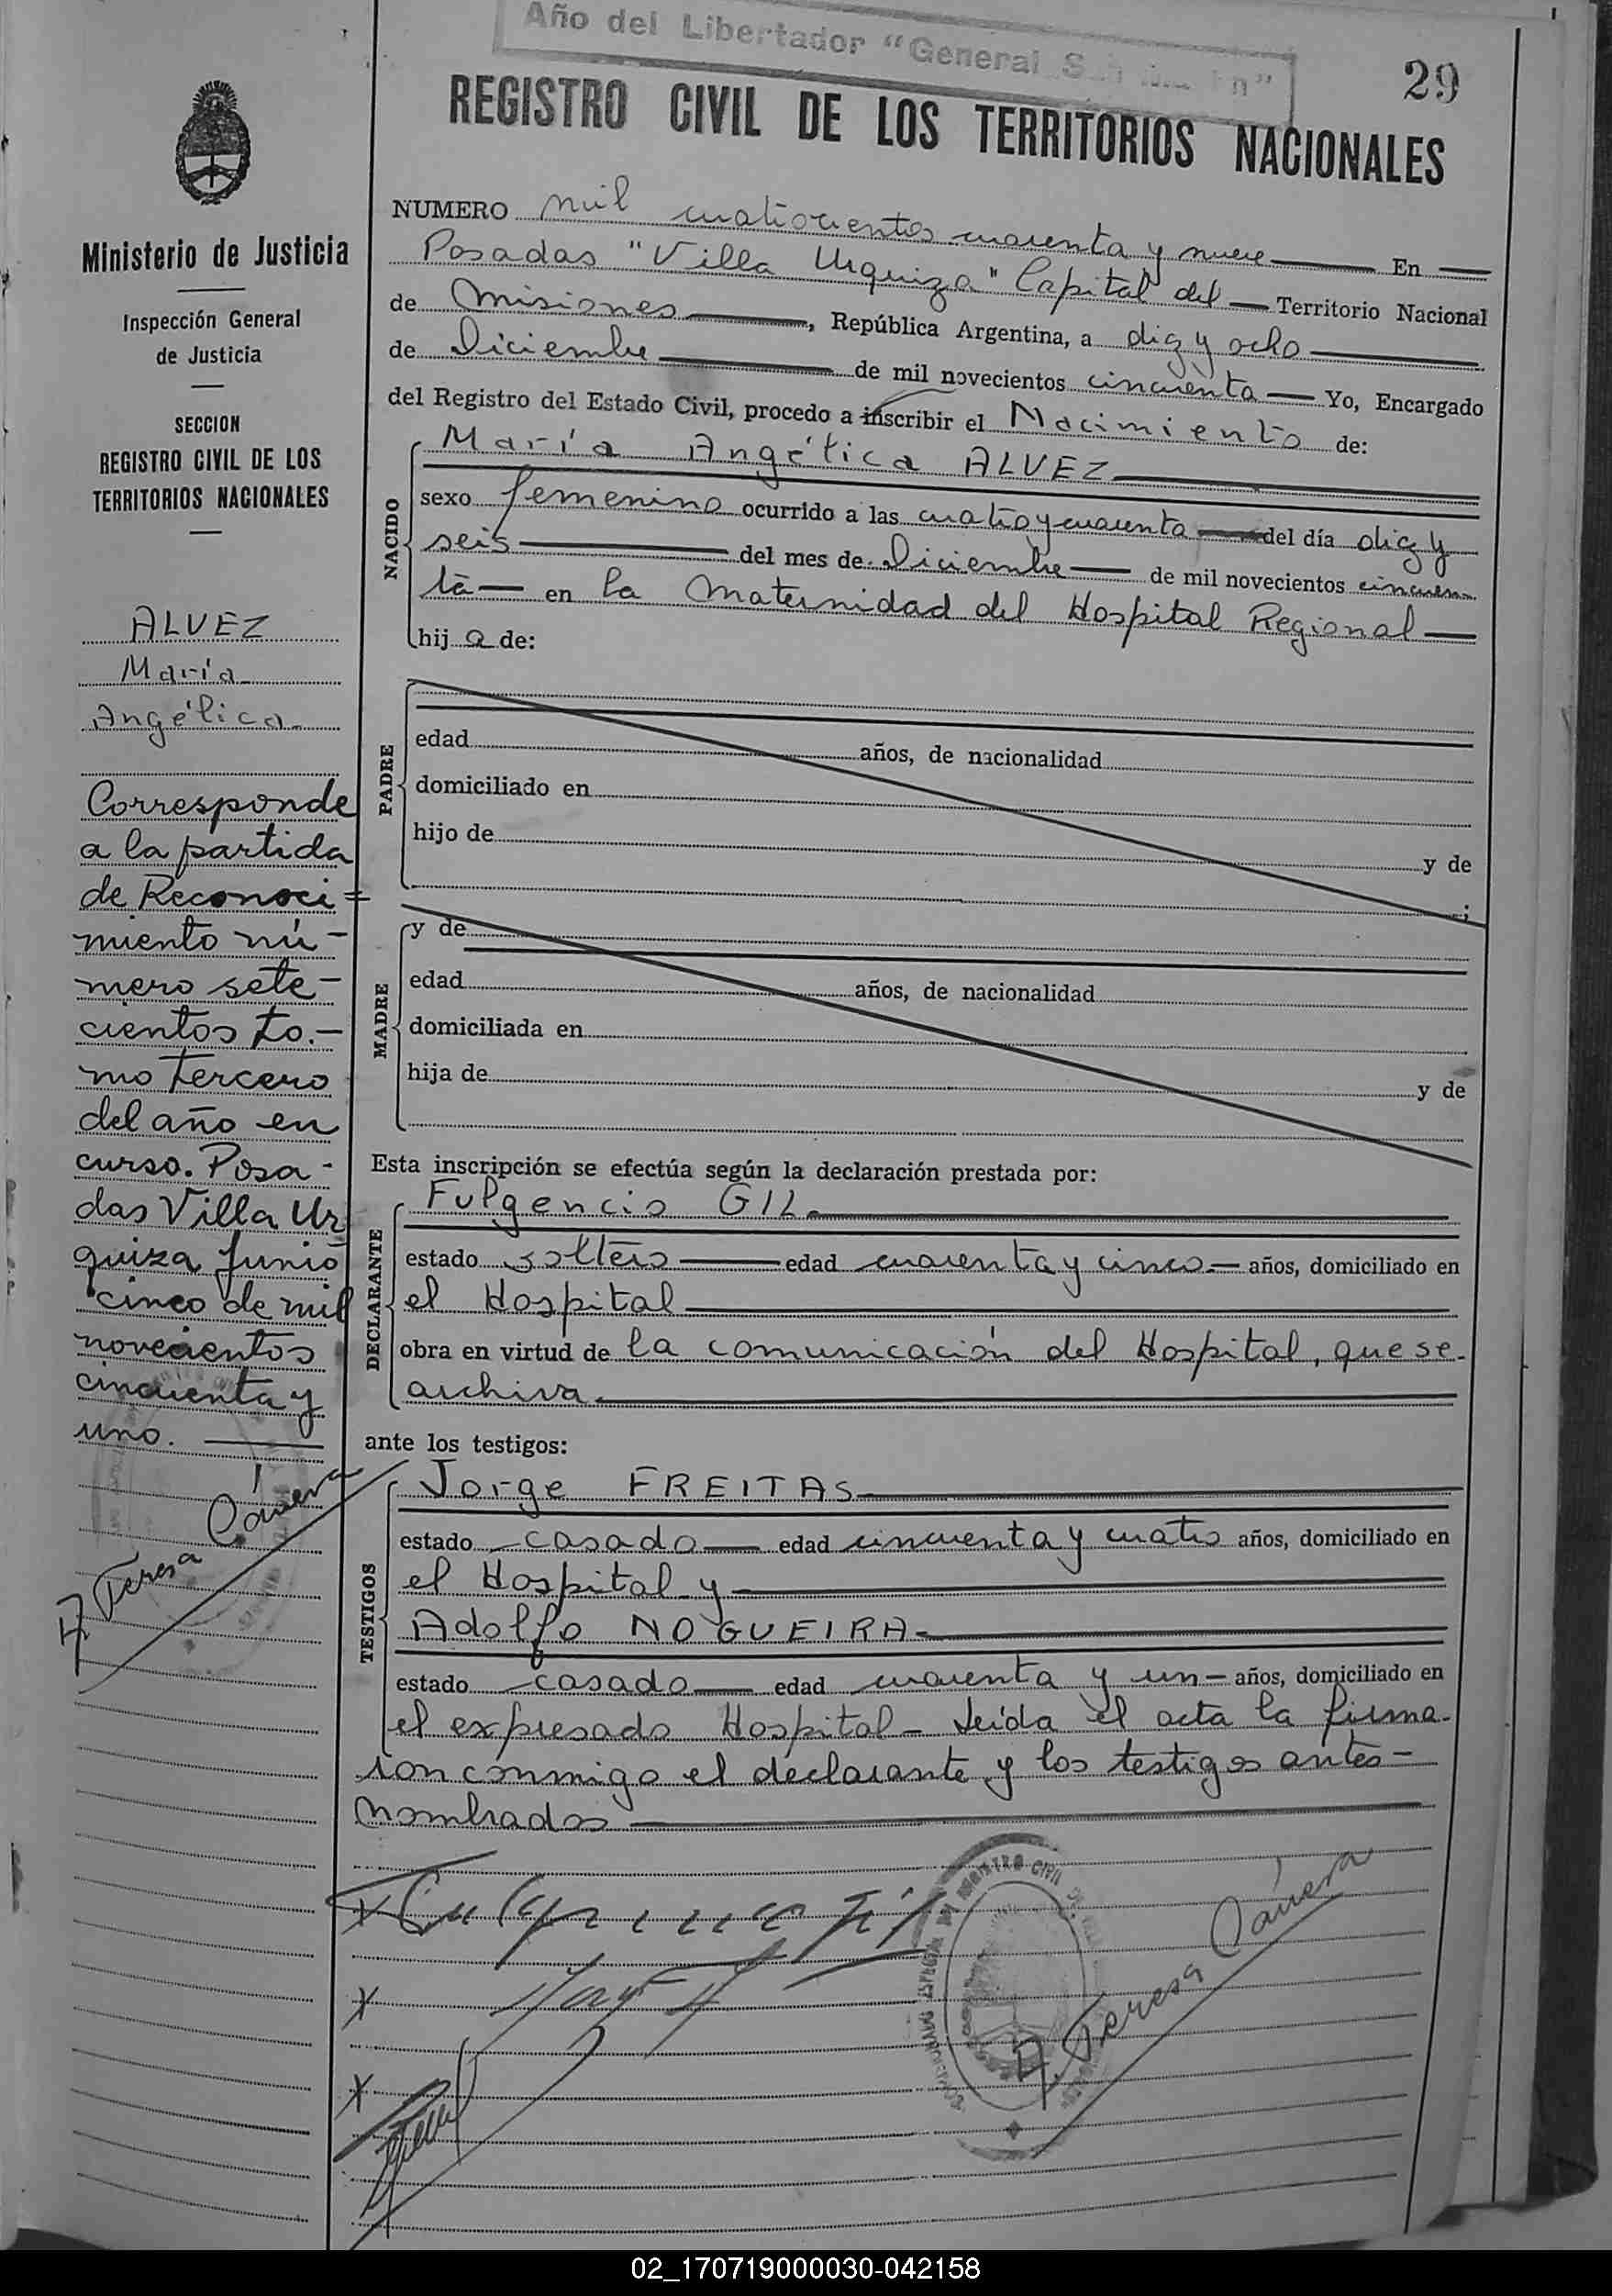 Año del Libertador "General San Martín"
29
REGISTRO CIVIL DE LOS TERRITORIOS NACIONALES
Ministerio de Justicia
Inspección General
de Justicia
SECCION
REGISTRO CIVIL DE LOS
TERRITORIOS NACIONALES
ALVEZ
María
Angélica
Corresponde
a la partida
de Reconoci=
miento nú-
mero sete-
cientos to.-
mo tercero
del año en
curso. Posa-
das Villa Ur
quiza Junio
cinco de mil
novecientos
cincuenta y
uno.
A Teresa Cávera
NUMERO mil cuatrocientos cuarenta y nueve En
Posadas "Villa Urquiza" Capital del Territorio Nacional
de Misiones, República Argentina, a diez y ocho
de Diciembre de mil novecientos cincuenta Yo, Encargado
del Registro del Estado Civil, procedo a inscribir el Nacimiento de:
NACIDO
María Angélica ALVEZ
sexo femenino ocurrido a las cuatro y cuarenta del día diez y
seis del mes de Diciembre de mil novecientos cincuen
ta en la Maternidad del Hospital Regional
hij a de:
PADRE
edad años, de nacionalidad
domiciliado en
hijo de y de
;
MADRE
y de
edad años, de nacionalidad
domiciliada en
hija de y de
Esta inscripción se efectúa según la declaración prestada por:
DECLARANTE
Fulgencio GIL
estado soltero edad cuarenta y cinco años, domiciliado en
el Hospital
obra en virtud de la comunicación del Hospital, que se
archiva
ante los testigos:
TESTIGOS
Jorge FREITAS
estado casado edad cincuenta y cuatro años, domiciliado en
el Hospital y
Adolfo NOGUEIRA
estado casado edad cuarenta y un años, domiciliado en
el expresado Hospital - Leída el acta la firma-
ron conmigo el declarante y los testigos antes-
nombrados
x Fulgencio Gil
x
x
A. Teresa Cávera
02_170719000030-042158